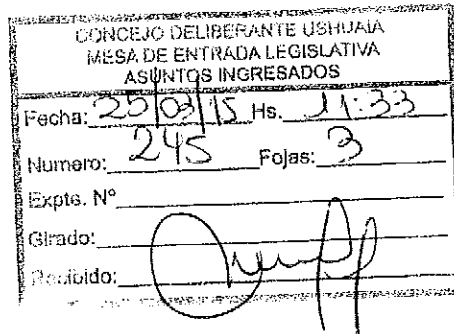 CONCEJO DELIBERANTE USHUAIA
MESA DE ENTRADA LEGISLATIVA
ASUNTOS INGRESADOS
Fecha: 25/03/15 Hs. 11:33
Numero: 245 Fojas: 3
Expte. Nº
Girado:
Recibido: